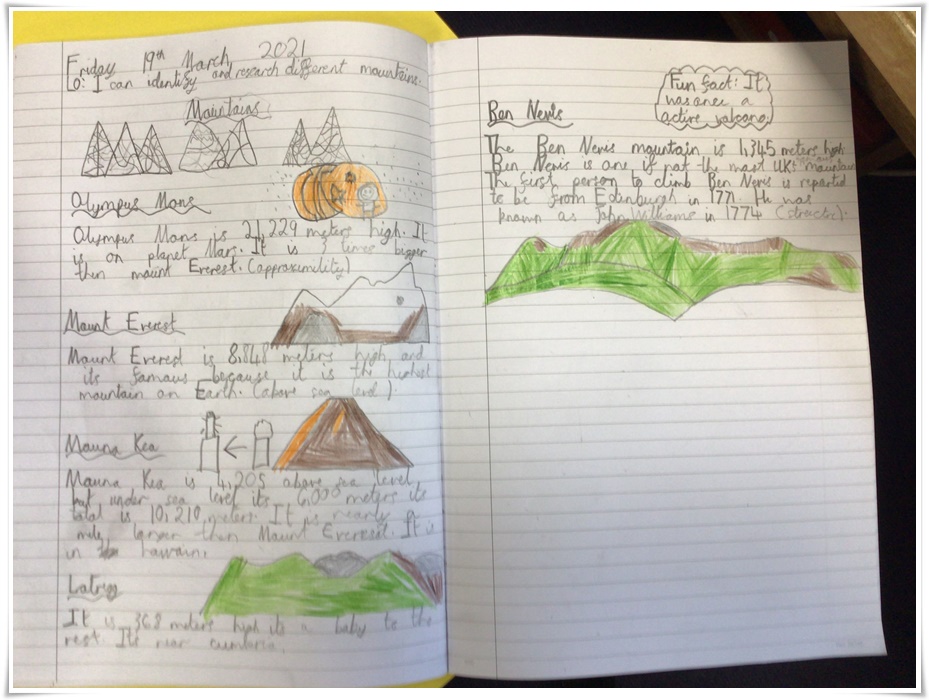 Friday 19th March, 2021
LO: I can identify and research different mountains.
Mountains:
Olympus Mons
Olympus Mons is 21,229 meters high. It
is on planet Mars. It is 3 times bigger
then mount Everest. (approximility)
Mount Everest
Mount Everest is 8,848 meters high and
its famous because it is the highest
mountain on Earth. (above sea level).
Mauna Kea
Mauna Kea is 4,205 above sea level,
but under sea level its 6,000 meters its
total is 10,210 meters. It is nearly a
mile larger then Mount Everest. It is
in hawain.
Latrigg
It is 368 meters high its a baby to the
rest. Its near cumbria.
Fun fact: It
was once a
active volcano.
Ben Nevis
The Ben Nevis mountain is 1,345 meters high
Ben Nevis is one if not the most UK mountain
The first person to climb Ben Nevis is reported
to be from Edinburgh in 1771. He was
known as John Williams in 1774